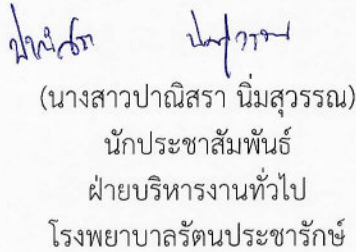 ปาณิสรา นิ่มสุวรรณ
(นางสาวปาณิสรา นิ่มสุวรรณ)
นักประชาสัมพันธ์
ฝ่ายบริหารงานทั่วไป
โรงพยาบาลรัตนประชารักษ์